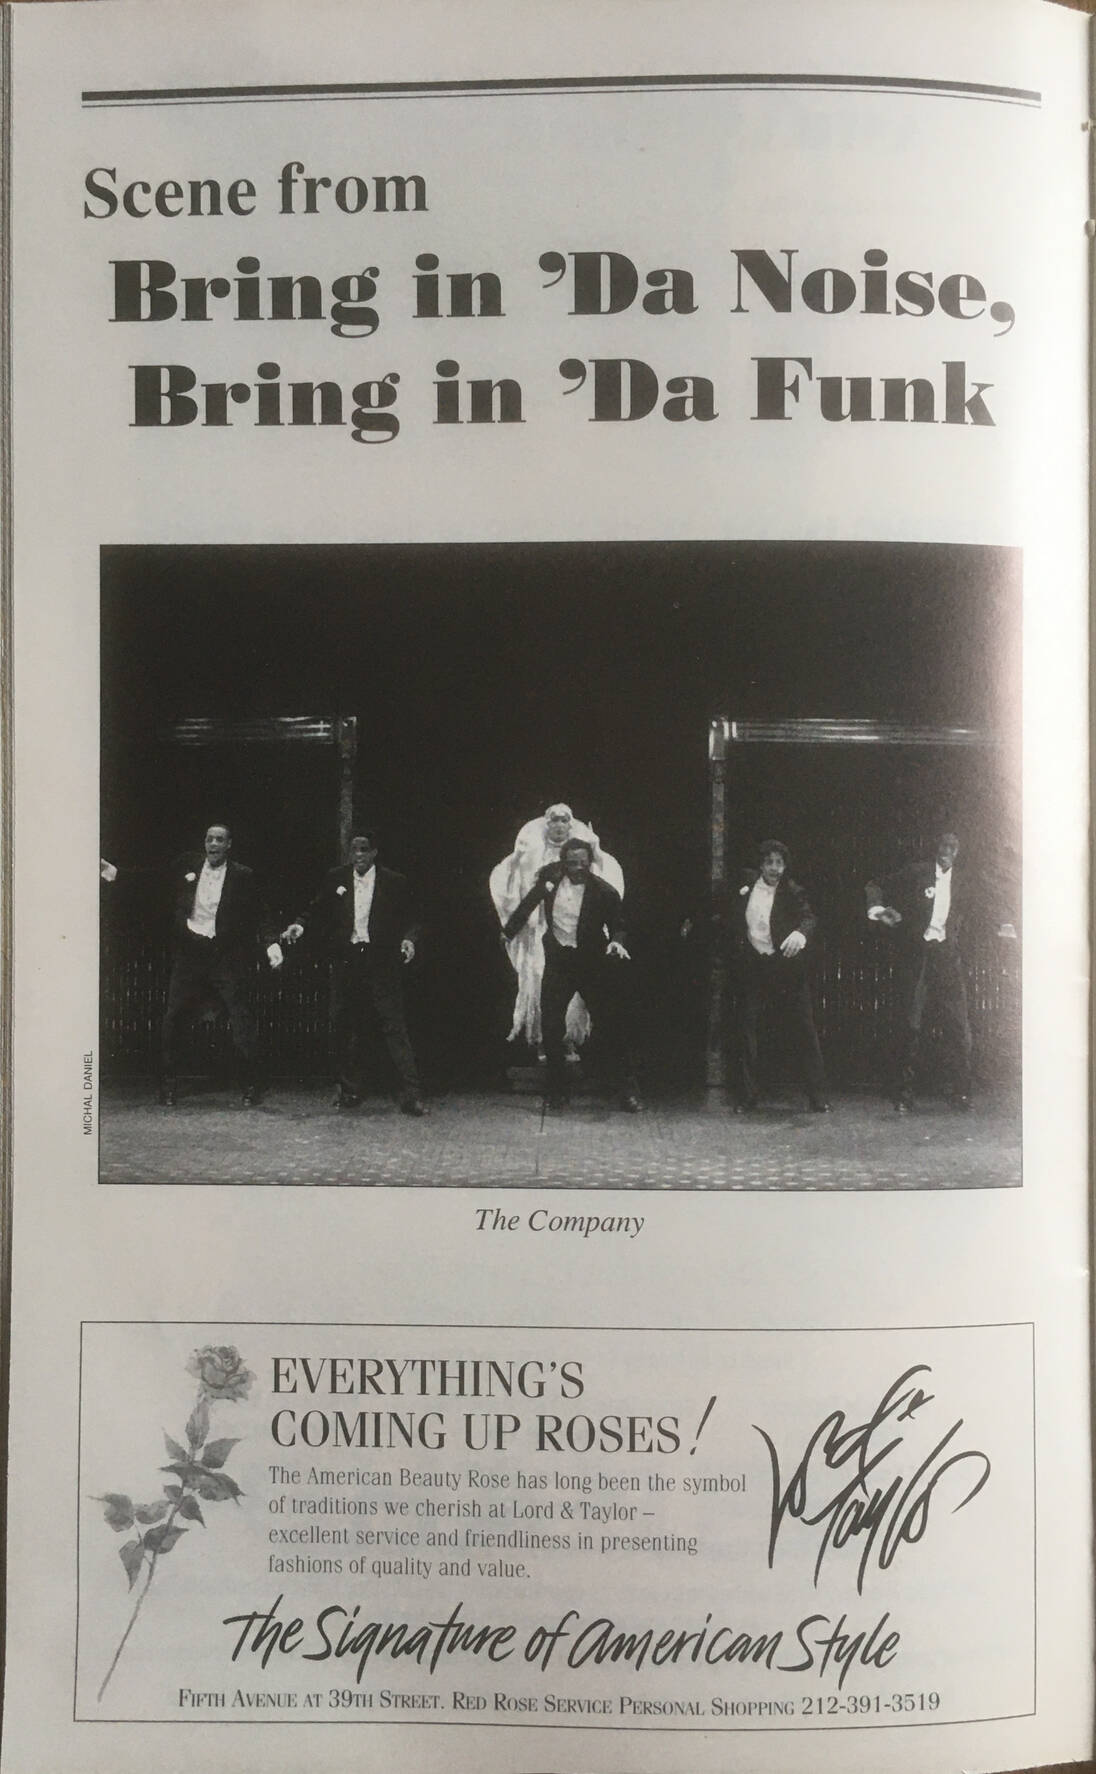 Scene from
Bring in ’Da Noise,
Bring in ’Da Funk
MICHAL DANIEL
The Company
EVERYTHING’S
COMING UP ROSES!
The American Beauty Rose has long been the symbol
of traditions we cherish at Lord & Taylor –
excellent service and friendliness in presenting
fashions of quality and value.
Lord & Taylor
The Signature of American Style
FIFTH AVENUE AT 39TH STREET. RED ROSE SERVICE PERSONAL SHOPPING 212-391-3519